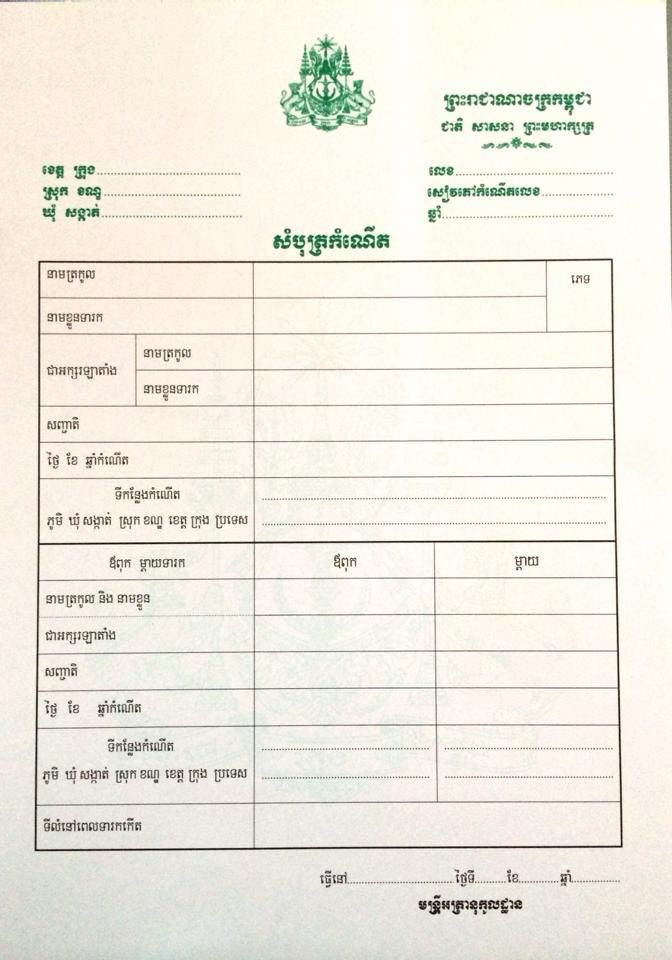 ព្រះរាជាណាចក្រកម្ពុជា
ជាតិ សាសនា ព្រះមហាក្សត្រ
ខេត្ត ក្រុង........................
ស្រុក ខណ្ឌ........................
ឃុំ សង្កាត់........................
លេខ........................
សៀវភៅកំណើតលេខ........................
ឆ្នាំ........................
សំបុត្រកំណើត
នាមត្រកូល
ភេទ
នាមខ្លួនទារក
ជាអក្សរឡាតាំង
នាមត្រកូល
នាមខ្លួនទារក
សញ្ជាតិ
ថ្ងៃ ខែ ឆ្នាំកំណើត
ទីកន្លែងកំណើត
ភូមិ ឃុំ សង្កាត់ ស្រុក ខណ្ឌ ខេត្ត ក្រុង ប្រទេស
ឪពុក ម្តាយទារក
ឪពុក
ម្តាយ
នាមត្រកូល និង នាមខ្លួន
ជាអក្សរឡាតាំង
សញ្ជាតិ
ថ្ងៃ ខែ ឆ្នាំកំណើត
ទីកន្លែងកំណើត
ភូមិ ឃុំ សង្កាត់ ស្រុក ខណ្ឌ ខេត្ត ក្រុង ប្រទេស
ទីលំនៅពេលទារកកើត
ធ្វើនៅ........................ថ្ងៃទី........ខែ..........ឆ្នាំ............
មន្ត្រីអត្រានុកូលដ្ឋាន